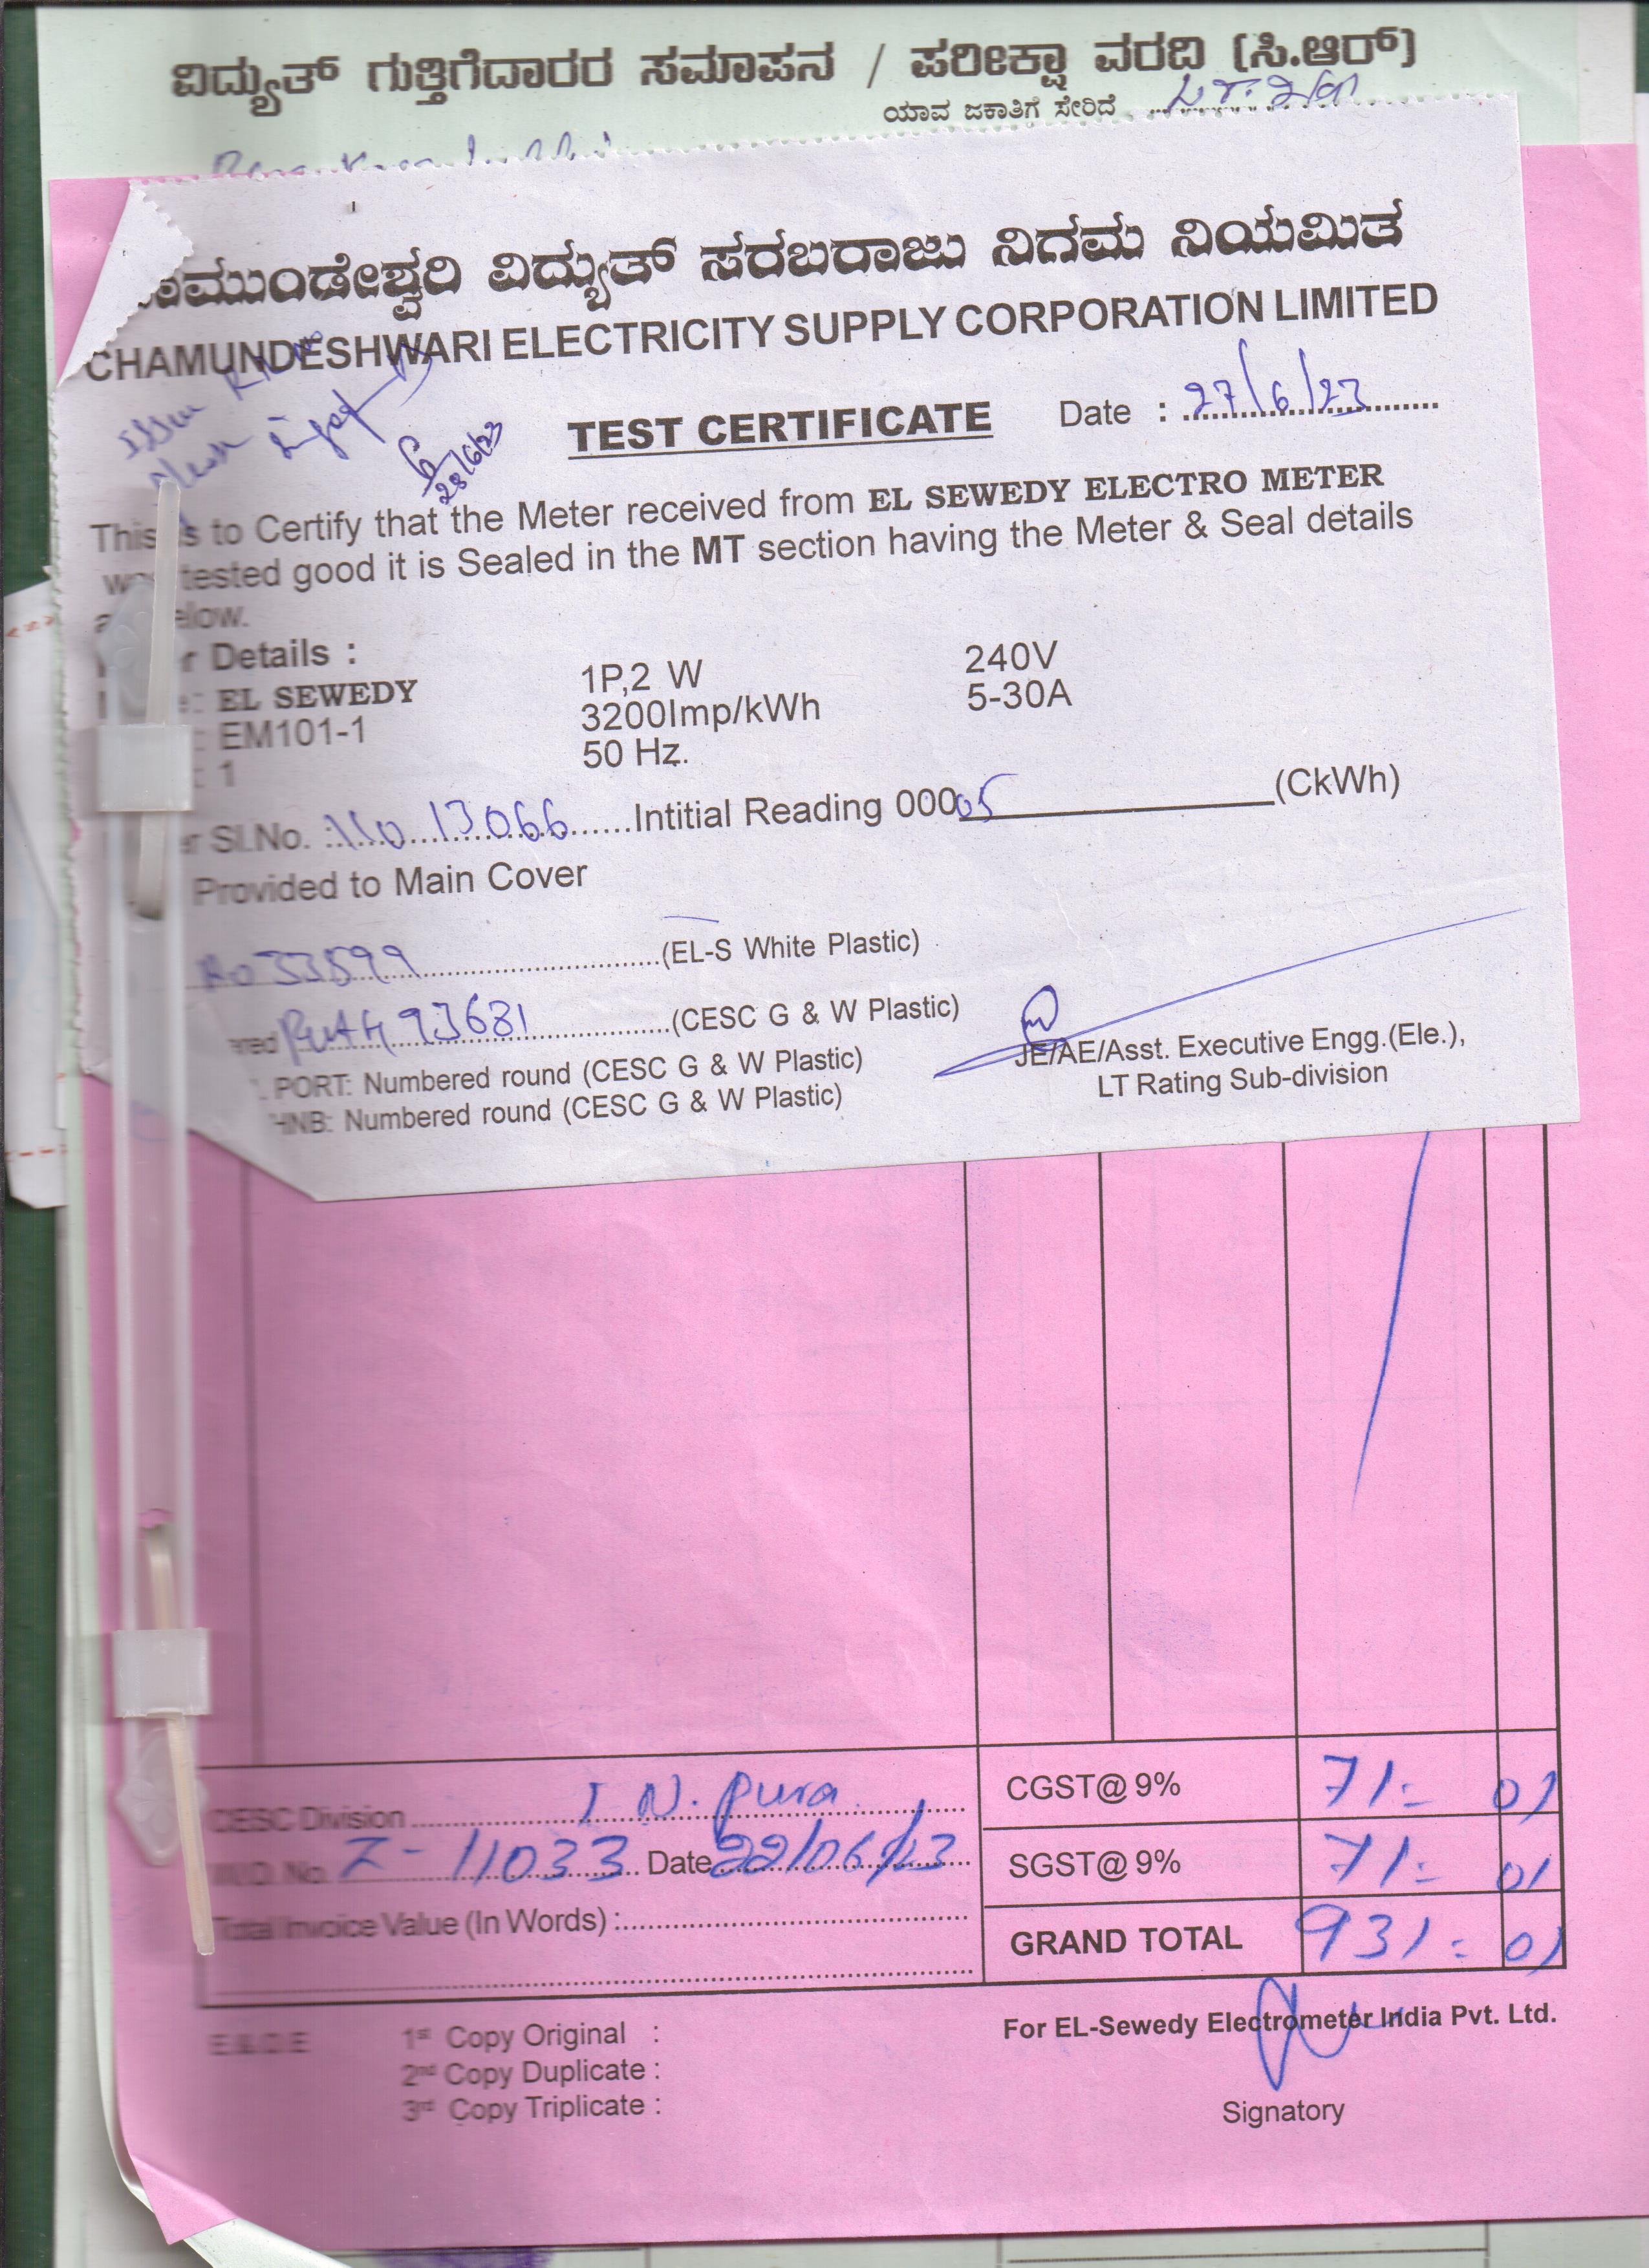 ವಿದ್ಯುತ್ ಗುತ್ತಿಗೆದಾರರ ಸಮಾಪನ / ಪರೀಕ್ಷಾ ವರದಿ (ಸಿ.ಆರ್)
ಯಾವ ಜಕಾತಿಗೆ ಸೇರಿದೆ
ಮುಂಡೇಶ್ವರಿ ವಿದ್ಯುತ್ ಸರಬರಾಜು ನಿಗಮ ನಿಯಮಿತ
CHAMUNDESHWARI ELECTRICITY SUPPLY CORPORATION LIMITED
TEST CERTIFICATE Date : 27/6/23
28/6/23
This is to Certify that the Meter received from EL SEWEDY ELECTRO METER
tested good it is Sealed in the MT section having the Meter & Seal details
elow.
r Details :
: EL SEWEDY 1P,2 W 240V
: EM101-1 3200Imp/kWh 5-30A
: 1 50 Hz.
er Sl.No. : 11013066 Intitial Reading 00005 (CkWh)
Provided to Main Cover
033599 (EL-S White Plastic)
93681 (CESC G & W Plastic)
PORT: Numbered round (CESC G & W Plastic)
HNB: Numbered round (CESC G & W Plastic)
JE/AE/Asst. Executive Engg.(Ele.),
LT Rating Sub-division
CESC Division T N. Pura CGST@ 9% 71 = 01
No. Z - 11033 Date 22/06/23 SGST@ 9% 71 = 01
Total Invoice Value (In Words) : GRAND TOTAL 931 = 01
E & O E 1st Copy Original :
2nd Copy Duplicate :
3rd Copy Triplicate :
For EL-Sewedy Electrometer India Pvt. Ltd.
Signatory